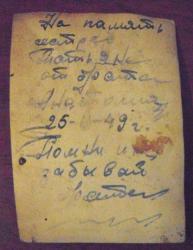 На память
сестре
Татьяне
от брата
Анатолия
25-II-49 г.
Помни и не
забывай